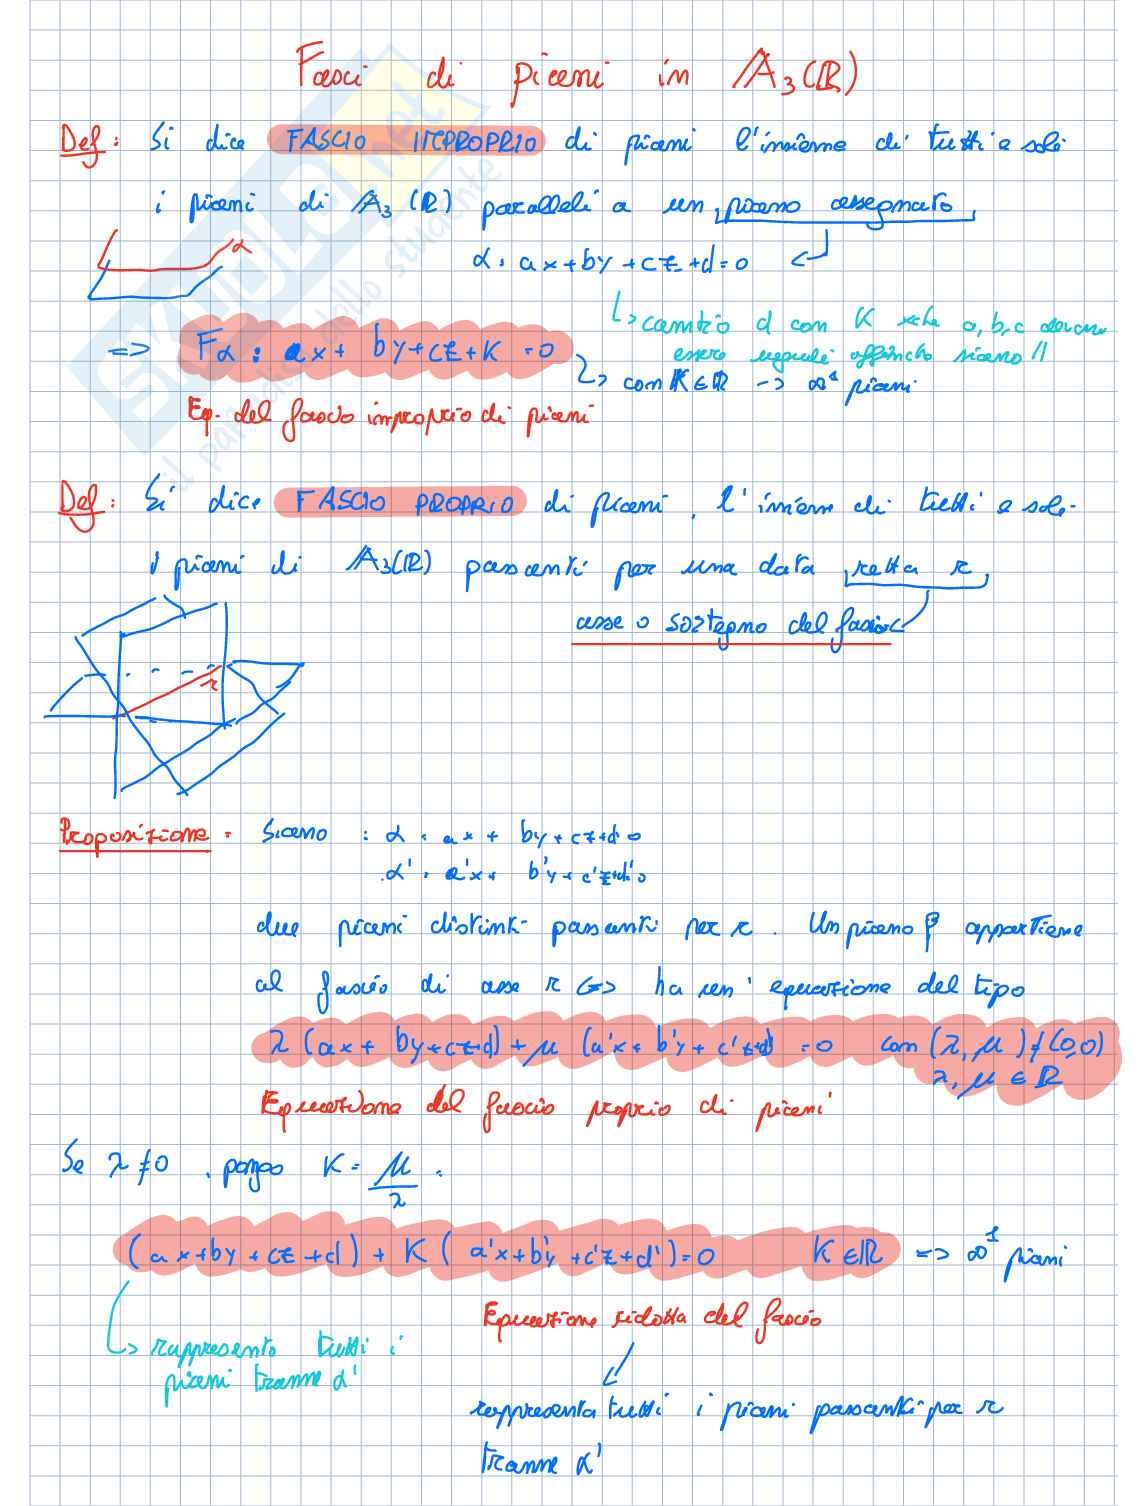 Fasci di piani in A₃(ℝ)
Def: Si dice FASCIO IMPROPRIO di piani l'insieme di tutti e soli
i piani di A₃(ℝ) paralleli a un piano assegnato
α
α: ax+by+cz+d=0
↳ cambio d con K xche a,b,c devono
essere uguali affinchè siano //
=> Fα: ax+ by+cz+K =0
↳ con K∈ℝ -> ∞¹ piani
Eq. del fascio improprio di piani
Def: Si dice FASCIO PROPRIO di piani, l'insieme di tutti e soli
i piani di A₃(ℝ) passanti per una data retta r
asse o sostegno del fascio
r
Proposizione: Siano : α: ax+ by+cz+d=0
α': a'x+ b'y+c'z+d'=0
due piani distinti passanti per r. Un piano β appartiene
al fascio di asse r <=> ha un'equazione del tipo
λ(ax+ by+cz+d)+μ (a'x+ b'y+ c'z+d') =0 con (λ,μ)≠(0,0)
λ, μ ∈ ℝ
Equazione del fascio proprio di piani
Se λ≠0, pongo K= μ/λ :
(ax+by+cz+d)+K( a'x+b'y+c'z+d')=0 K∈ℝ => ∞¹ piani
Equazione ridotta del fascio
↳ rappresento tutti i
piani tranne α'
rappresenta tutti i piani passanti per r
tranne α'
SKUOLA.net
il paradiso dello studente